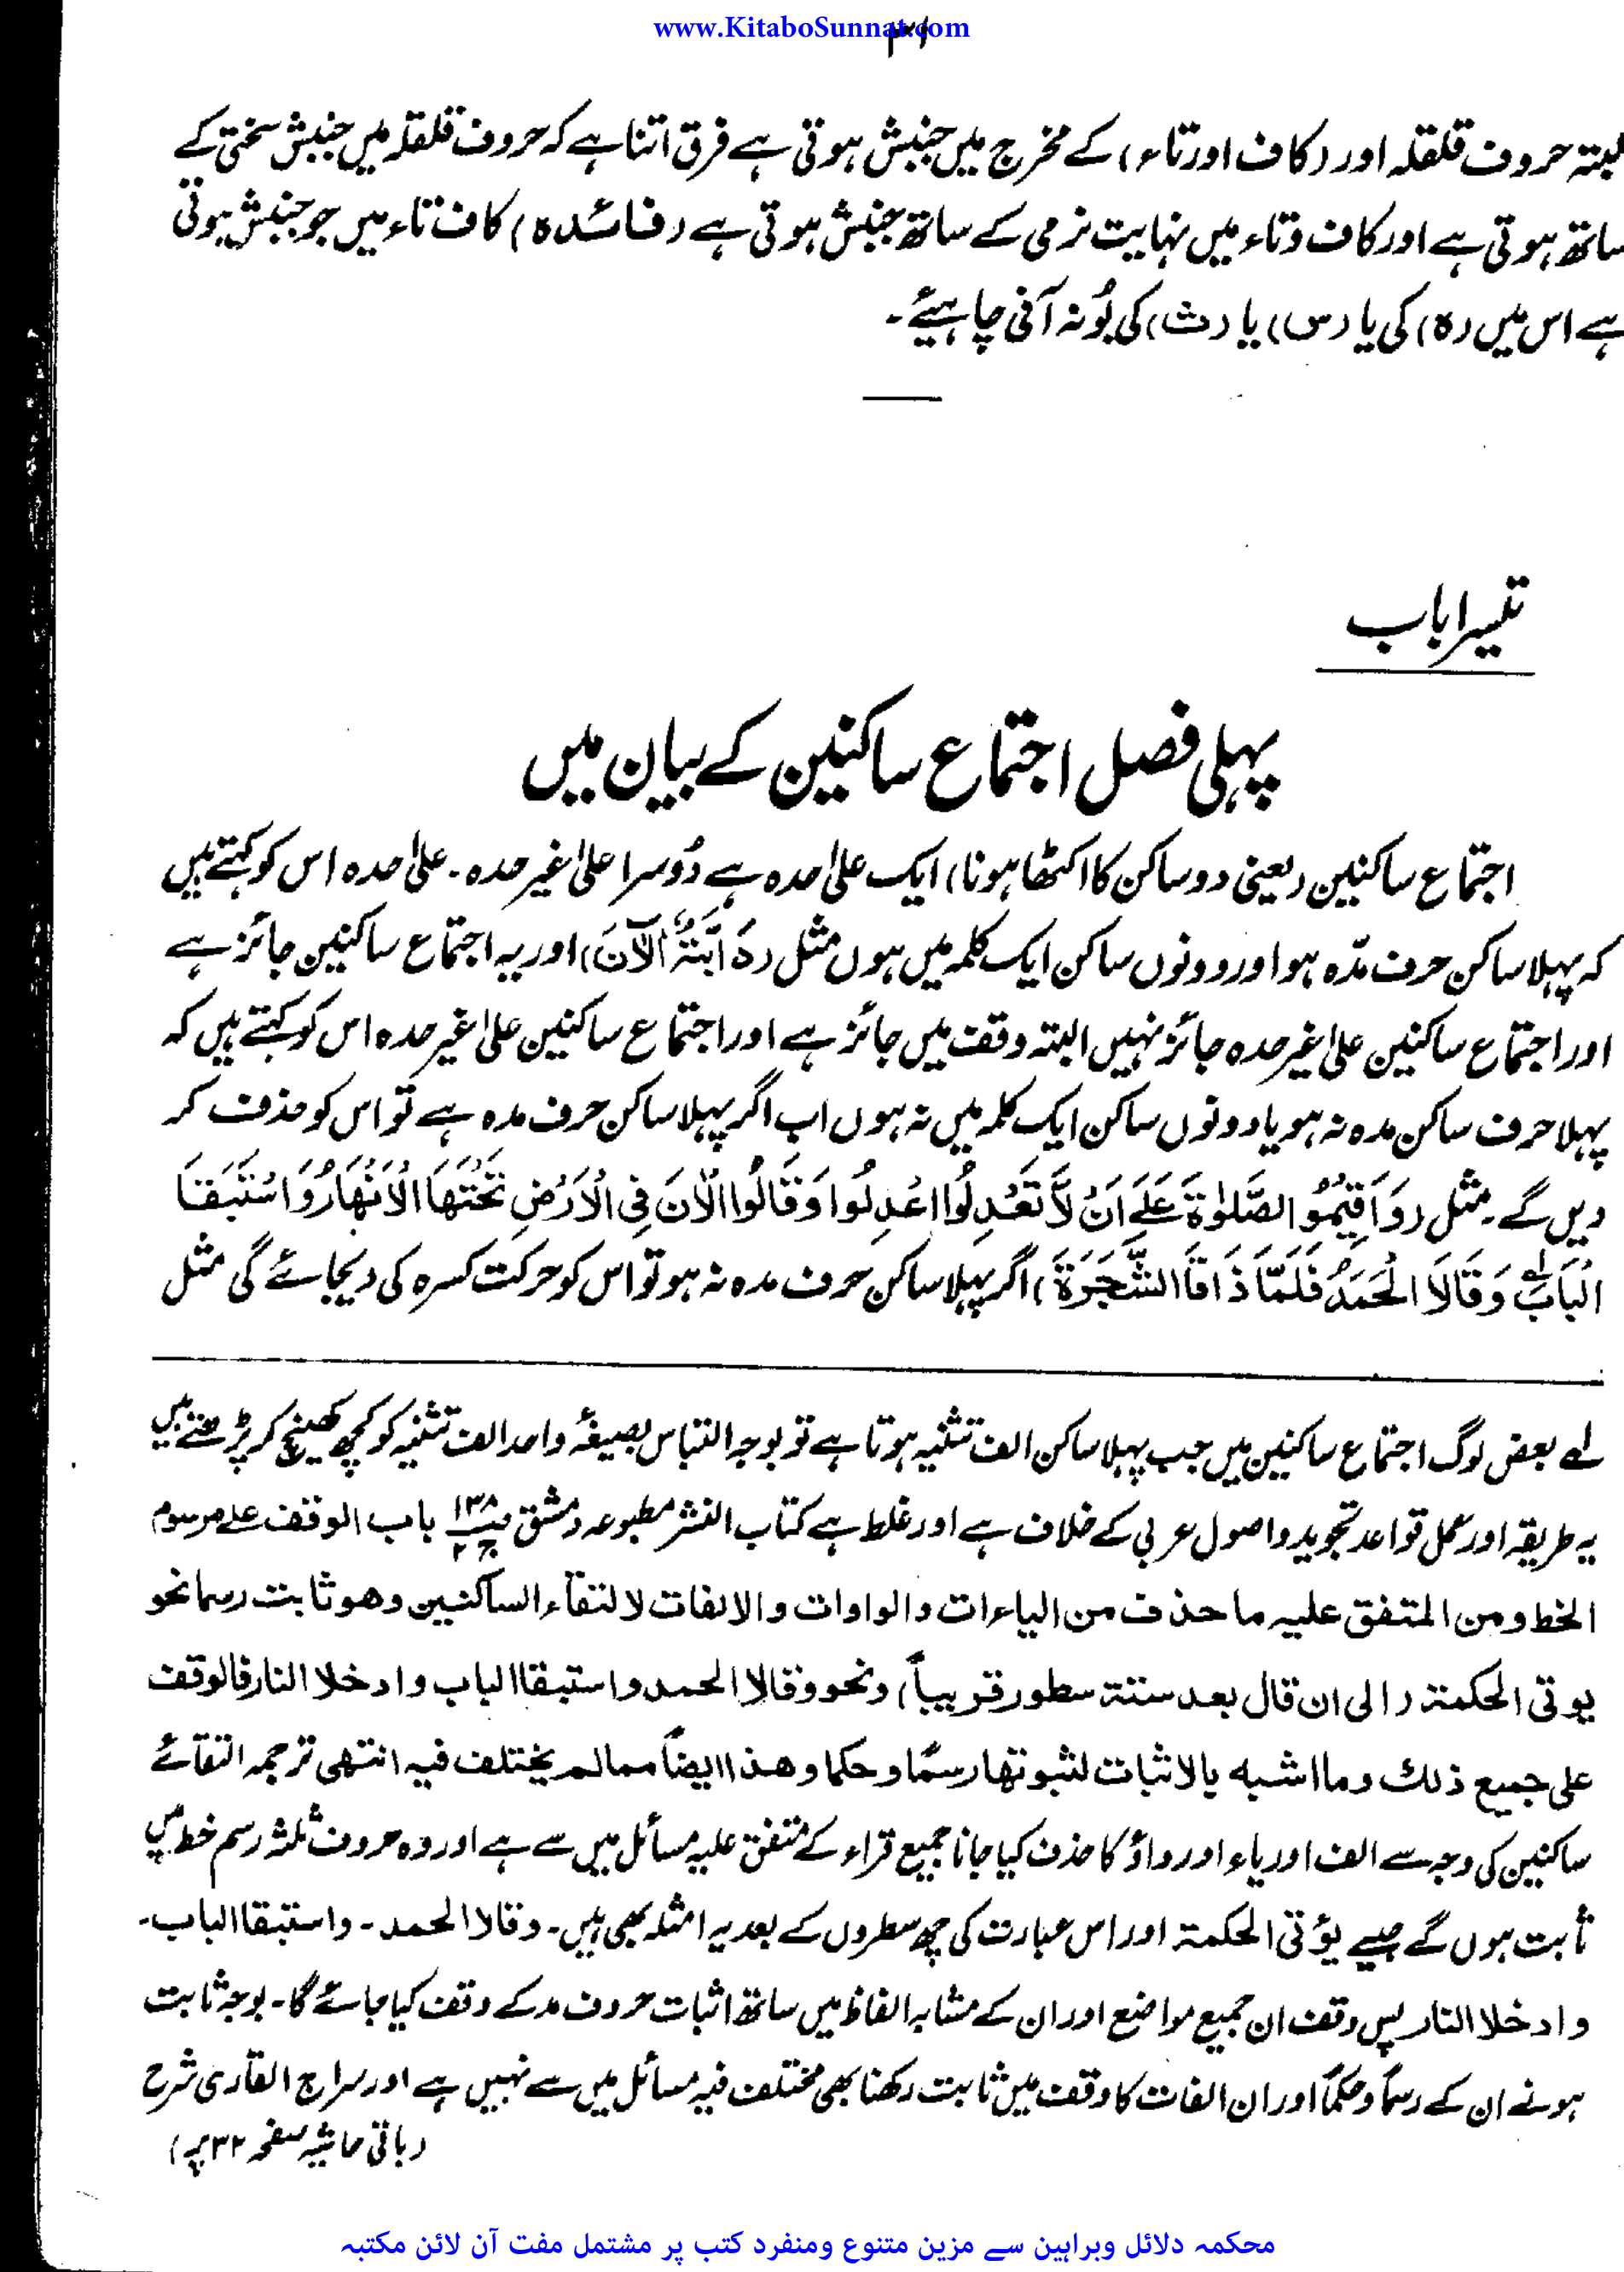 www.KitaboSunnat.com
۳۱
لبتہ حروف قلقلہ اور (کاف اور تاء) کے مخرج میں جنبش ہوتی ہے فرق اتنا ہے کہ حروف قلقلہ میں جنبش سختی کے
ساتھ ہوتی ہے اور کاف وتاء میں نہایت نرمی کے ساتھ جنبش ہوتی ہے (فائدہ) کاف تاء میں جو جنبش ہوتی
ہے اس میں (ہ) کی یا (س) یا (ث) کی بُو نہ آنی چاہیئے۔
تیسرا باب
پہلی فصل اجتماع ساکنین کے بیان میں
اجتماع ساکنین (یعنی دو ساکن کا اکٹھا ہونا) ایک علیٰ حدہ ہے دُوسرا علیٰ غیر حدہ۔ علیٰ حدہ اس کو کہتے ہیں
کہ پہلا ساکن حرف مدّہ ہو اور دونوں ساکن ایک کلمہ میں ہوں مثل (دَآبَّةٌ آلْآنَ) اور یہ اجتماع ساکنین جائز ہے
اور اجتماع ساکنین علیٰ غیر حدہ جائز نہیں البتہ وقف میں جائز ہے اور اجتماع ساکنین علیٰ غیر حدہ اس کو کہتے ہیں کہ
پہلا حرف ساکن مدہ نہ ہو یا دونوں ساکن ایک کلمہ میں نہ ہوں اب اگر پہلا ساکن حرف مدہ ہے تو اس کو حذف کر
دیں گے۔ مثل (وَاَقِيْمُو الصَّلٰوةَ عَلٰے اَنْ لَّا تَعْدِلُوا اعْدِلُوا وَقَالُوا الْاٰنَ فِی الْاَرْضِ تَحْتَهَا الْاَنْهَارُ وَاسْتَبَقَا
الْبَابَ لہ وَقَالَا الْحَمْدُ فَلَمَّا ذَاقَا الشَّجَرَةَ) اگر پہلا ساکن حرف مدہ نہ ہو تو اس کو حرکت کسرہ کی دیجائے گی مثل
لہ بعض لوگ اجتماع ساکنین میں جب پہلا ساکن الف تثنیہ ہوتا ہے تو بوجہ التباس بصیغۂ واحد الف تثنیہ کو کچھ کھینچ کر پڑھتے ہیں
یہ طریقہ اور عمل قواعد تجوید واصول عربی کے خلاف ہے اور غلط ہے کتاب النشر مطبوعہ دمشق ص۱۳۸ ج۲ باب الوقف علے مرسوم
الخط ومن المتفق علیہ ما حذف من الیاءات والواوات والالفات لالتقآء الساکنین وھو ثابت رسما نحو
یوتی الحکمۃ (الی ان قال بعد ستۃ سطور قریباً) ونحو وقالا الحمد واستبقا الباب وادخلا النار فالوقف
علی جمیع ذلك وما اشبہ بالاثبات لثبوتھا رسمًا وحکما وھذا ایضاً مما لم یختلف فیہ انتھی ترجمہ التقائے
ساکنین کی وجہ سے الف اور یاء اور واؤ کا حذف کیا جانا جمیع قراء کے متفق علیہ مسائل میں سے ہے اور وہ حروف ثلثہ رسم خط میں
ثابت ہوں گے جیسے یؤتی الحکمۃ اور اس عبارت کی چھ سطروں کے بعد یہ امثلہ بھی ہیں۔ وقالا الحمد۔ واستبقا الباب۔
وادخلا النار پس وقف ان جمیع مواضع اور ان کے مشابہ الفاظ میں ساتھ اثبات حروف مد کے وقف کیا جائے گا۔ بوجہ ثابت
ہونے ان کے رسماً وحکماً اور ان الفات کا وقف میں ثابت رکھنا بھی مختلف فیہ مسائل میں سے نہیں ہے اور سراج القاری شرح
(باقی حاشیہ صفحہ ۳۲ پر)
محکمہ دلائل وبراہین سے مزین متنوع ومنفرد کتب پر مشتمل مفت آن لائن مکتبہ